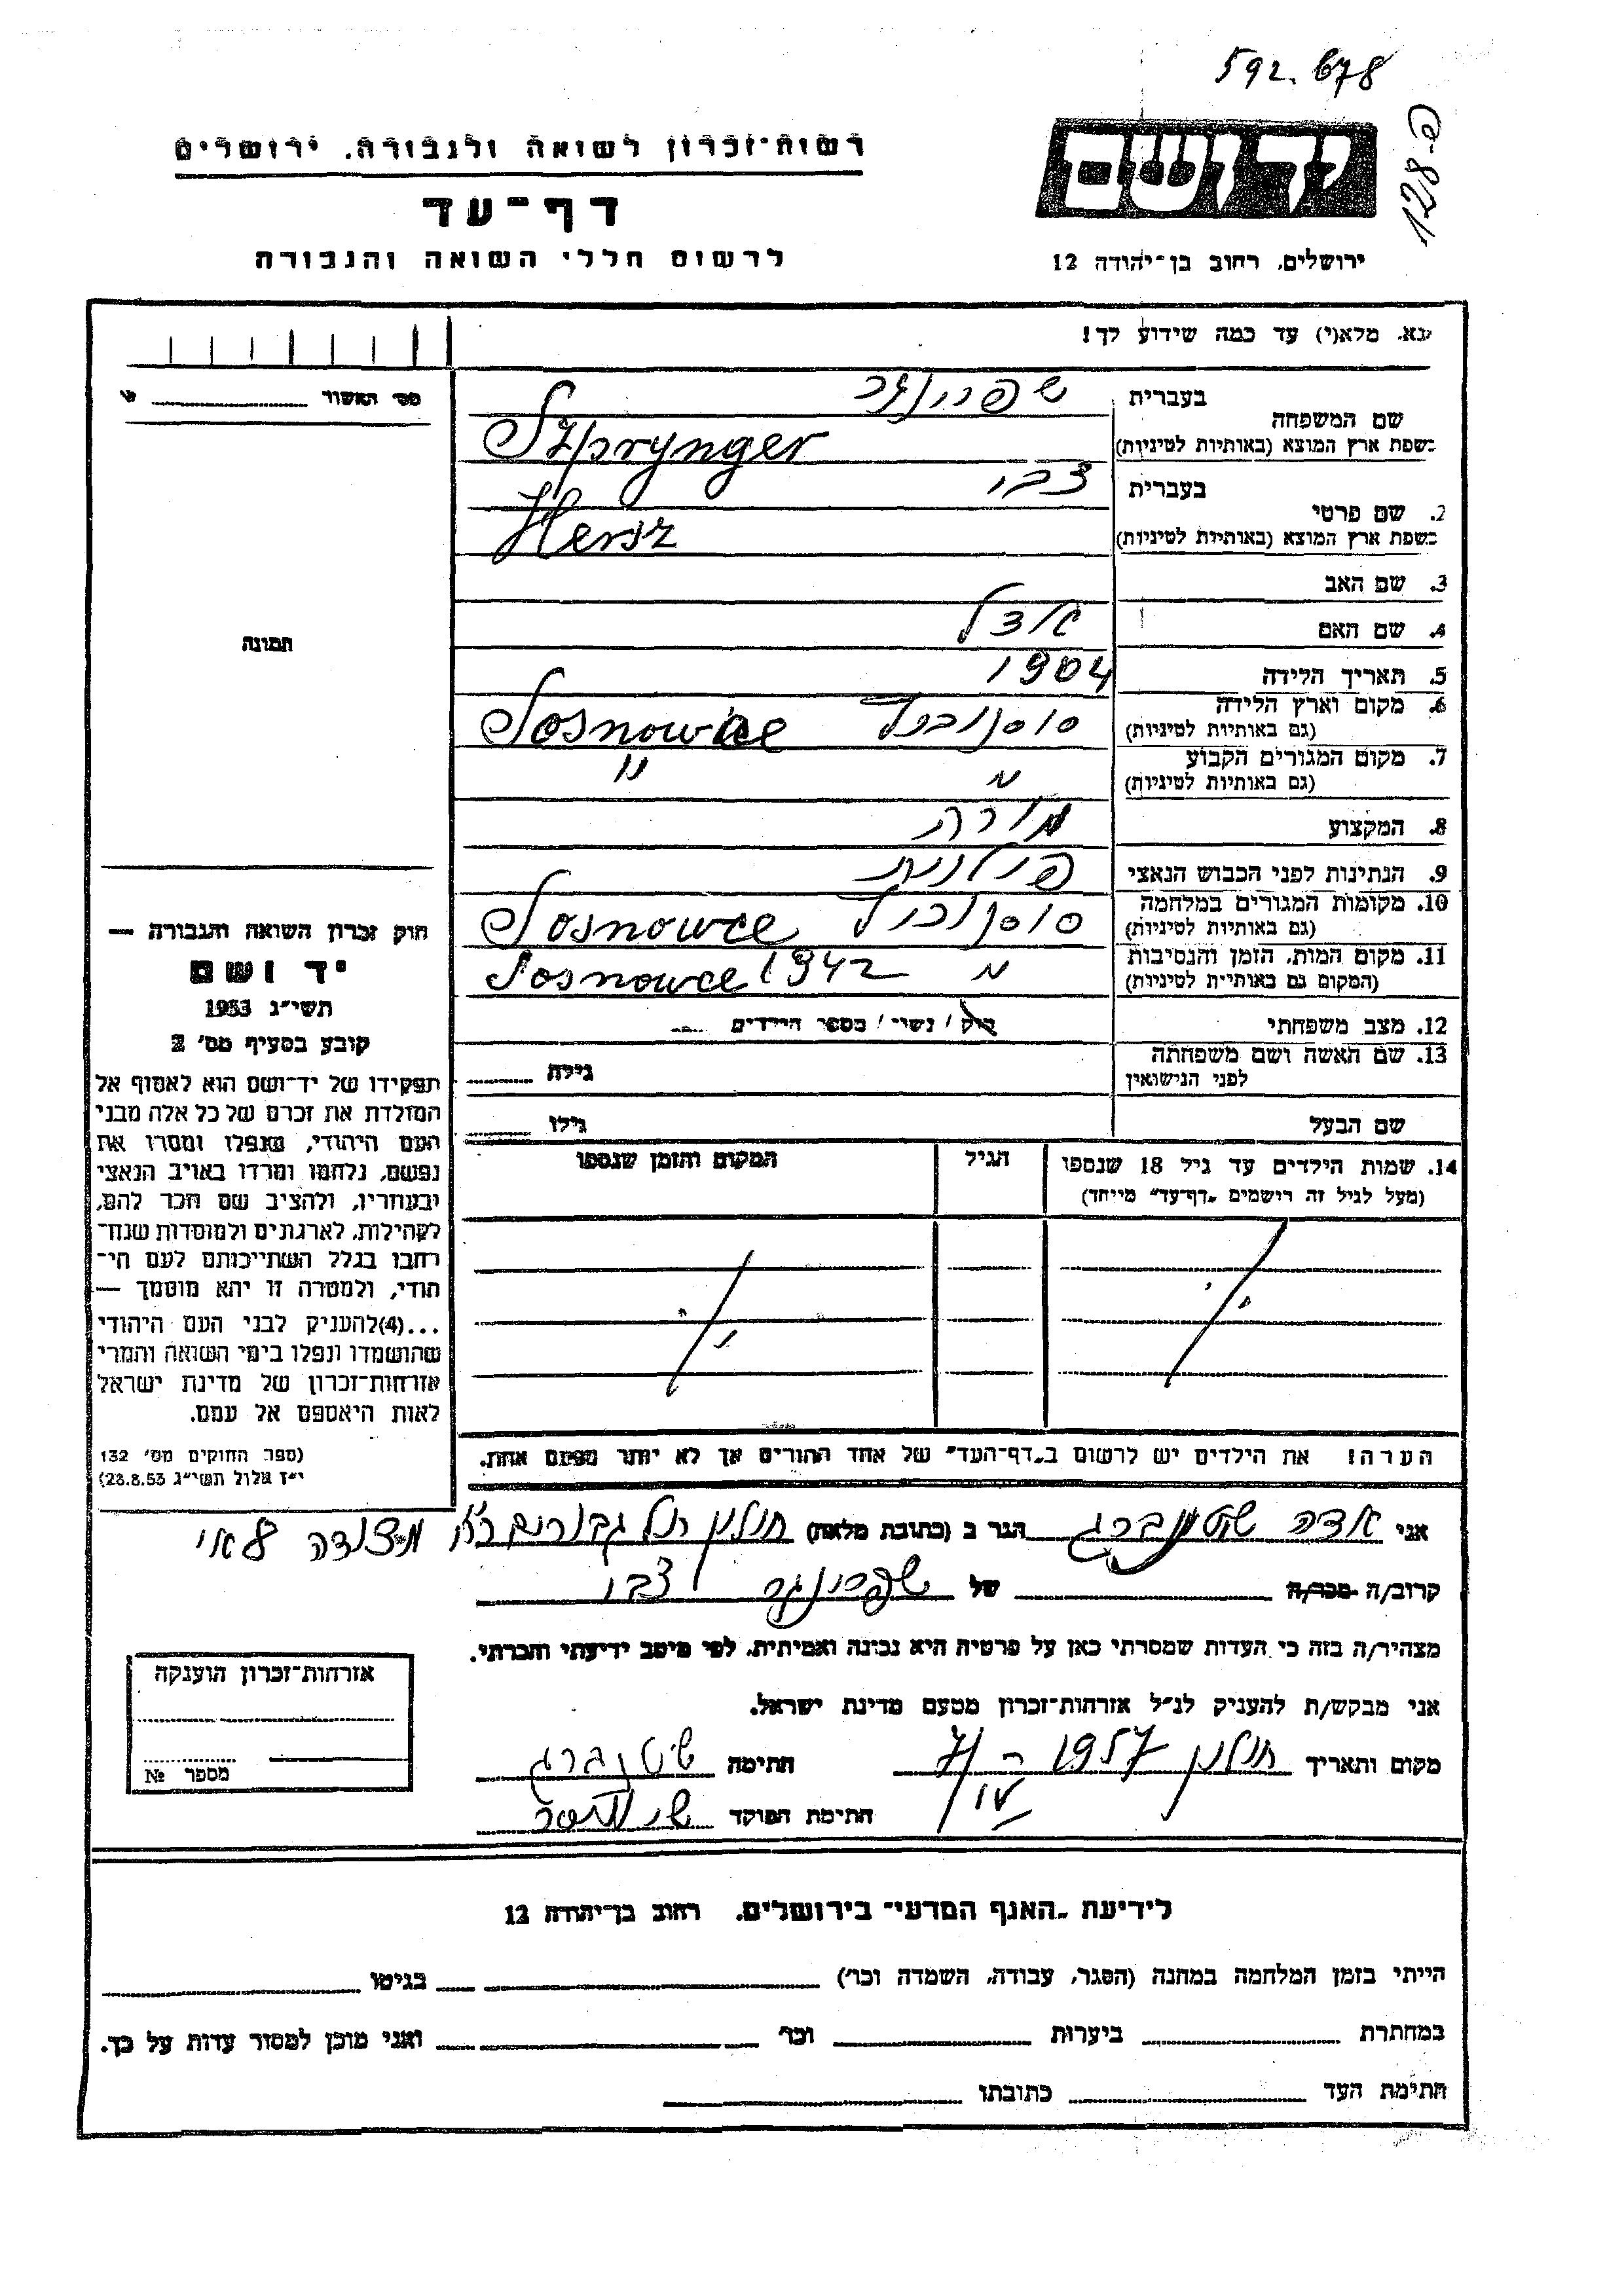 592.678
128-פ
רשות-זכרון לשואה ולגבורה. ירושלים
דף-עד
לרשום חללי השואה והגבורה
יד ושם
ירושלים, רחוב בן-יהודה 12
נא. מלא(י) עד כמה שידוע לך!
מס' האשור
בעברית שפרינגר
שם המשפחה
בשפת ארץ המוצא (באותיות לטיניות) Szprynger
בעברית צבי
2. שם פרטי
בשפת ארץ המוצא (באותיות לטיניות) Hersz
3. שם האב
4. שם האם
5. תאריך הלידה 1904
6. מקום וארץ הלידה סוסנוביץ Sosnowce
(גם באותיות לטיניות)
7. מקום המגורים הקבוע " "
(גם באותיות לטיניות)
8. המקצוע מורה
9. הנתינות לפני הכבוש הנאצי פולנית
10. מקומות המגורים במלחמה סוסנוביץ Sosnowce
(גם באותיות לטיניות)
11. מקום המות, הזמן והנסיבות " 1942 Sosnowce
(המקום גם באותיות לטיניות)
12. מצב משפחתי רוק / נשוי / מספר הילדים
13. שם האשה ושם משפחתה
לפני הנישואין
גילה
שם הבעל גילו
14. שמות הילדים עד גיל 18 שנספו הגיל המקום והזמן שנספו
(מעל לגיל זה רישמים "דף-עד" מייחד)
הערה! את הילדים יש לרשום ב"דף-העד" של אחד ההורים אך לא יותר מפעם אחת.
תמונה
חוק זכרון השואה והגבורה —
יד ושם
תשי"ג 1953
קובע בסעיף מס' 2
תפקידו של יד-ושם הוא לאסוף אל
המולדת את זכרם של כל אלה מבני
העם היהודי, שנפלו ומסרו את
נפשם, נלחמו ומרדו באויב הנאצי
ובעוזריו, ולהציב שם וזכר להם,
לקהילות, לארגונים ולמוסדות שנח-
רבו בגלל השתייכותם לעם הי-
הודי, ולמטרה זו יהא מוסמך —
...(4)להעניק לבני העם היהודי
שהושמדו ונפלו בימי השואה והמרי
אזרחות-זכרון של מדינת ישראל
לאות היאספם אל עמם.
(ספר החוקים מס' 132
י"ז אלול תשי"ג 23.8.53)
אני אדה שטטנברג הגר ב (כתובת מלאה) חולון תל גבורים
קרוב/ה מכר/ה של שפרינגר צבי
מצהיר/ה בזה כי העדות שמסרתי כאן על פרטיה היא נכונה ואמיתית, לפי מיטב ידיעתי והכרתי.
אני מבקש/ת להעניק לנ"ל אזרחות-זכרון מטעם מדינת ישראל.
מקום ותאריך חולון 1957 חתימה
חתימת הפוקד
אזרחות-זכרון הוענקה
מספר №
לידיעת "האגף המדעי" בירושלים. רחוב בן-יהודה 12
הייתי בזמן המלחמה במחנה (הסגר, עבודה, השמדה וכו') בגיטו
במחתרת ביערות וכו' ואני מוכן למסור עדות על כך.
חתימת העד כתובתו